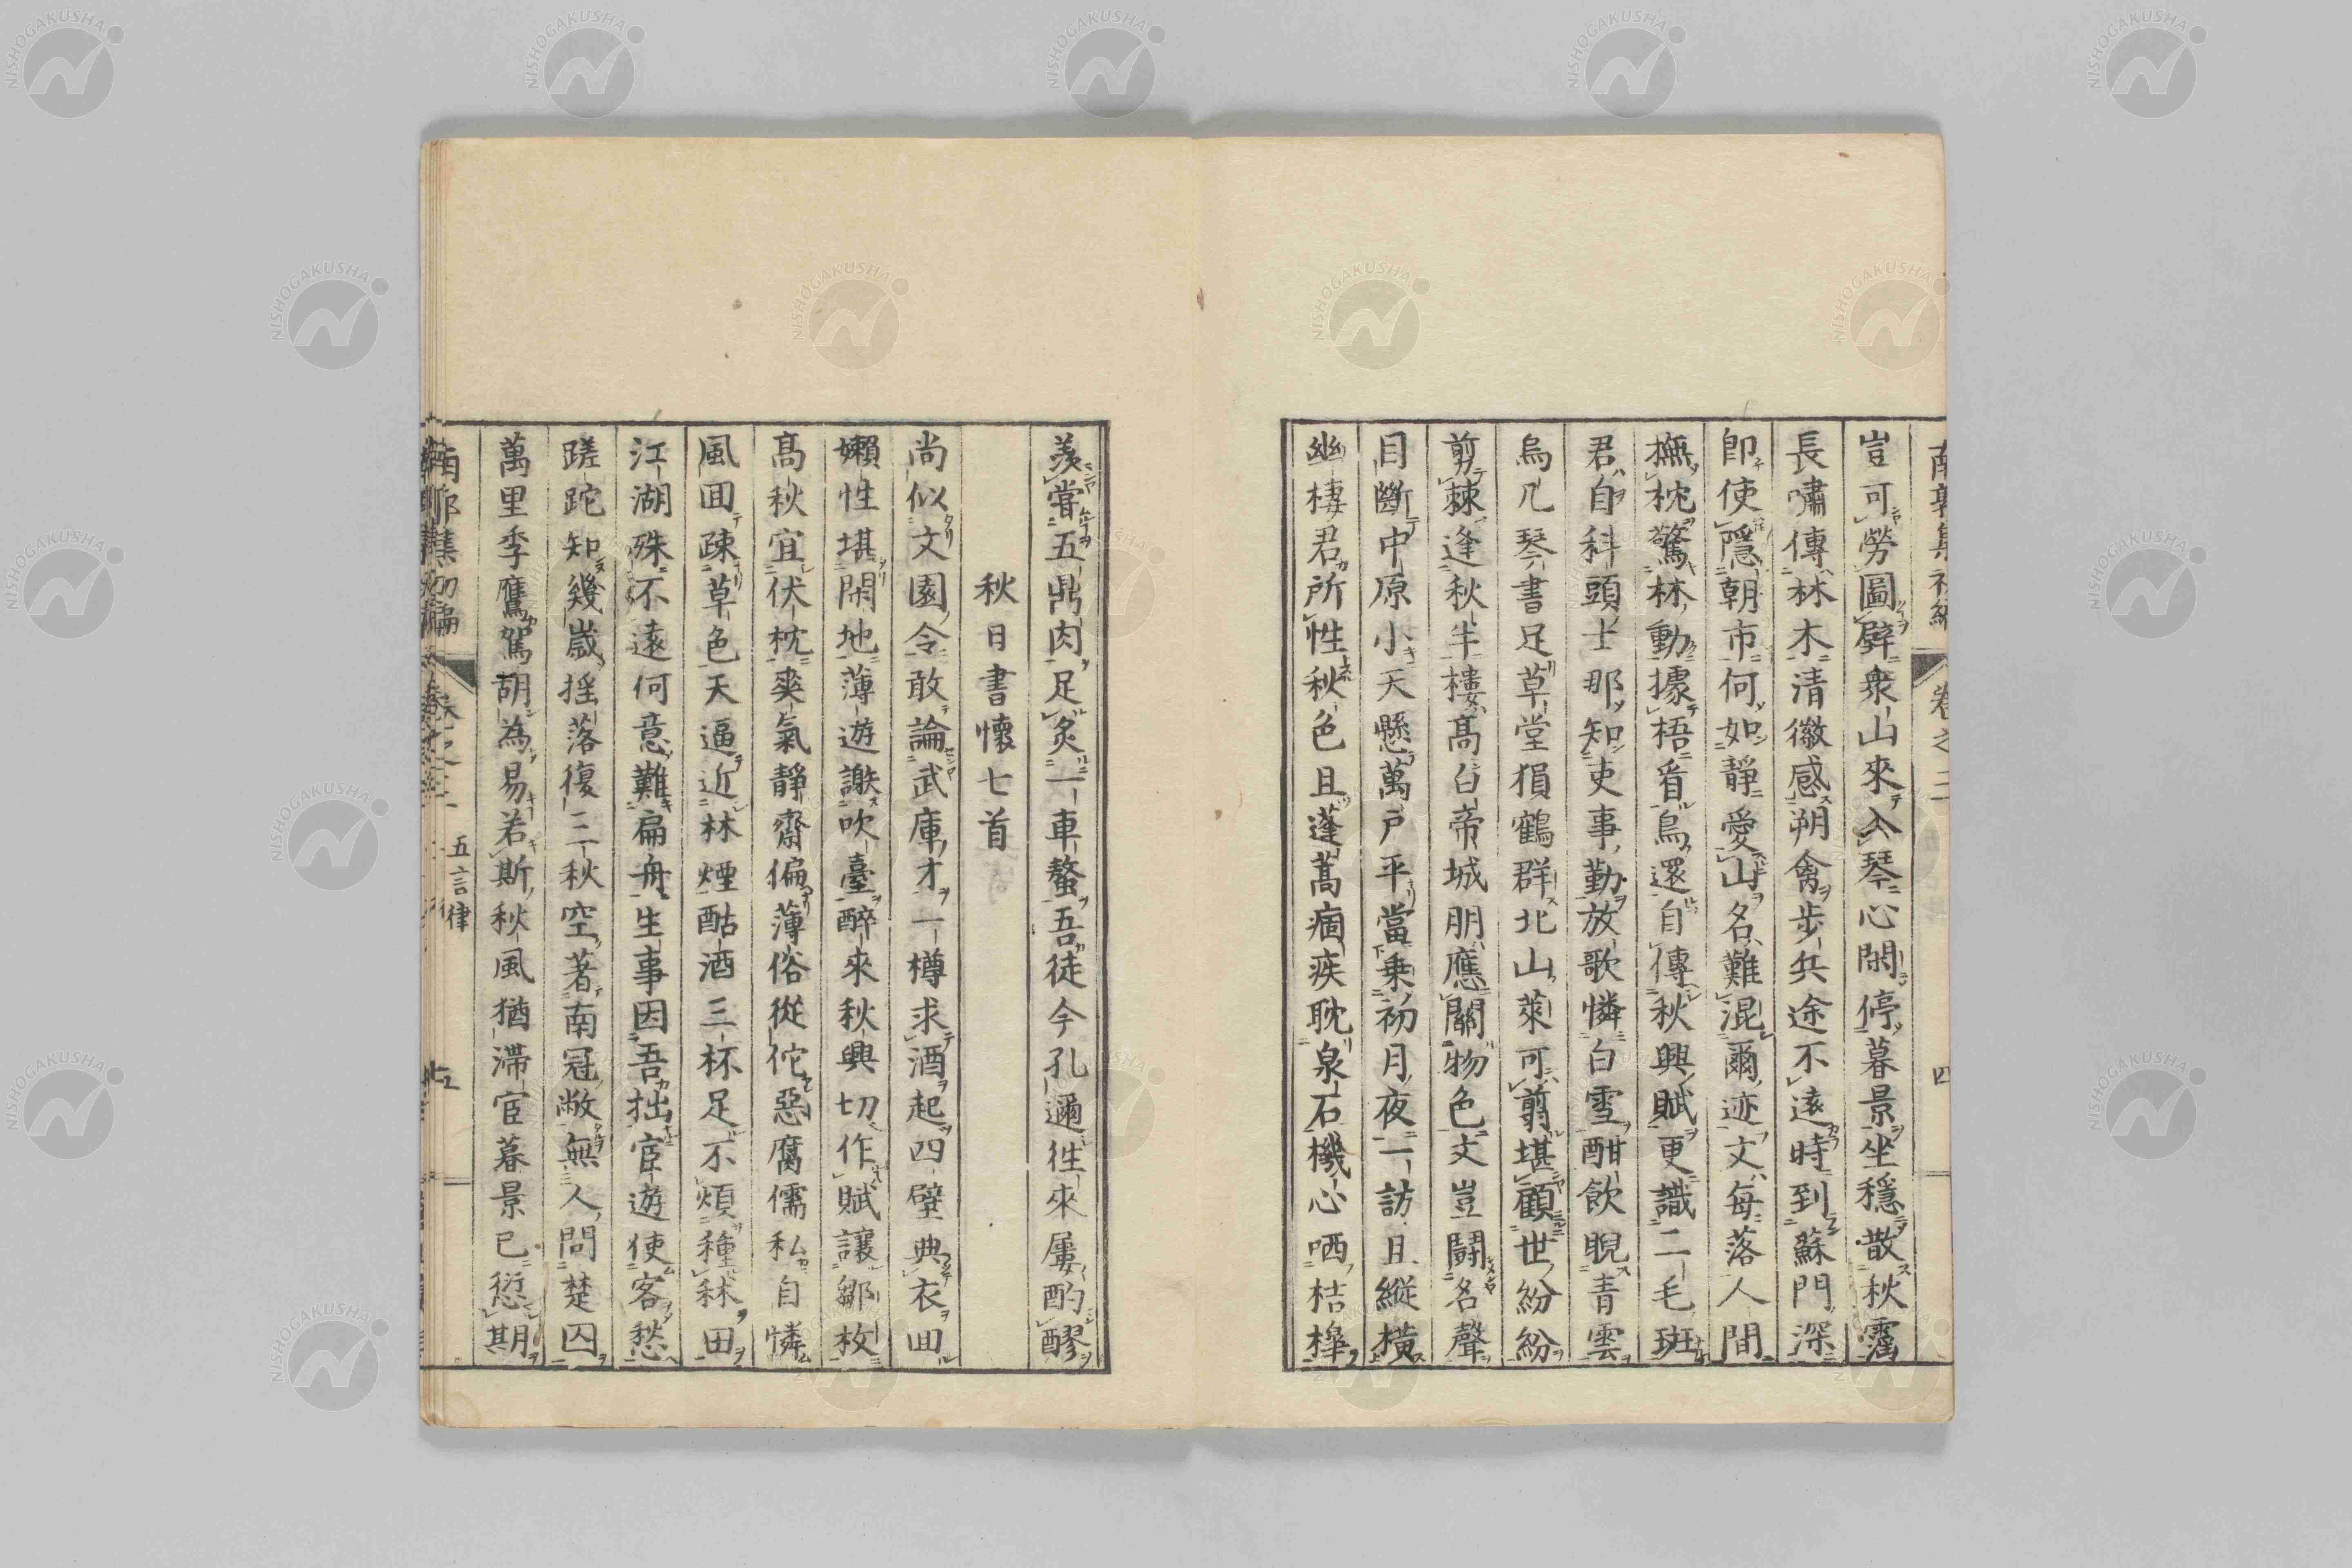 豈可勞圖壁衆山來入琴心閑停暮景坐穩散秋霪
長嘯傳林木清徽感朔禽步兵途不遠時到蘇門深
卽使隱朝市何如靜愛山名難混爾迹文每落人間
撫枕驚林動據梧看鳥還自傳秋興賦更識二毛斑
君自科頭士那知吏事勤放歌憐白雪酣飲睨青雲
烏几琴書足草堂猿鶴群北山萊可剪堪顧世紛紛
剪棘逢秋半樓高白帝城朋應關物色文豈鬪名聲
目斷中原小天懸萬戸平當乗初月夜一訪且縱橫
幽棲君所性秋色且蓬蒿痼疾耽泉石機心哂桔槹
羡嘗五鼎肉足炙一車螯吾徒今孔邇徃來屢酌醪
秋日書懷七首
尚似文園令敢論武庫才一樽求酒起四壁典衣回
嬾性堪閑地薄遊謝吹臺醉來秋興切作賦讓鄒枚
高秋宜伏枕爽氣靜齋偏薄俗從佗惡腐儒私自憐
風回疎草色天逼近林煙酤酒三杯足不煩種秫田
江湖殊不遠何意難扁舟生事因吾拙宦遊使客愁
蹉跎知幾歳揺落復三秋空著南冠敝無人問楚囚
萬里季鷹駕胡為易若斯秋風猶滯宦暮景已愆期
五言律
NISHOGAKUSHA